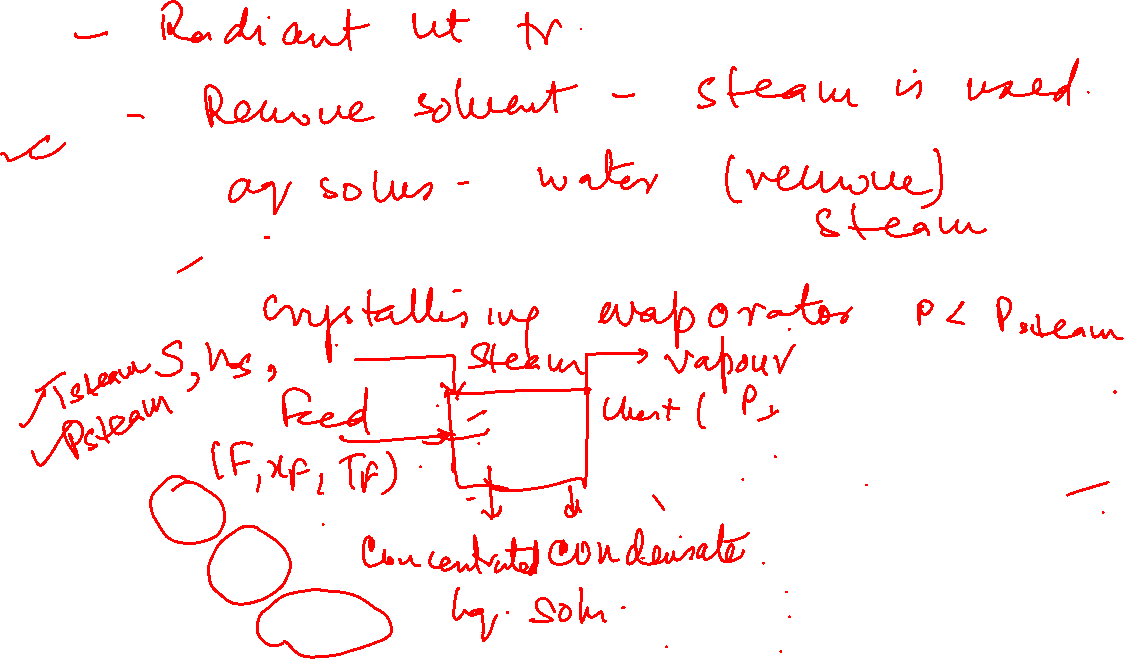 - Radiant ht tr.
- Remove solvent - steam is used.
aq solns - water (remove)
steam
crystallising evaporator P < Psteam
Steam → vapour
Tsteam S, hs,
Psteam
Feed
chest ( P,
(F, xF, TF)
Concentrated condensate
liq. soln.